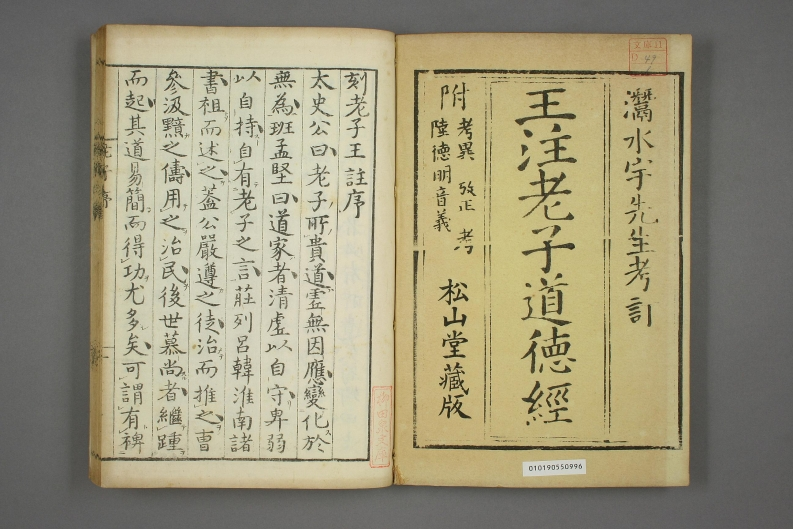 灊水宇先生考訂
王注老子道德經
附 考異 攷正 考
陸德明音義
松山堂藏版
文庫11
D
49
010190550996
刻老子王註序
太史公曰老子所貴道虛無因應變化於
無為班孟堅曰道家者清虛以自守卑弱
以自持自有老子之言莊列呂韓淮南諸
書祖而述之蓋公嚴遵之徒治而推之曹
參汲黯之儔用之治民後世慕尚者繼踵
而起其道易簡而得功尤多矣可謂有裨